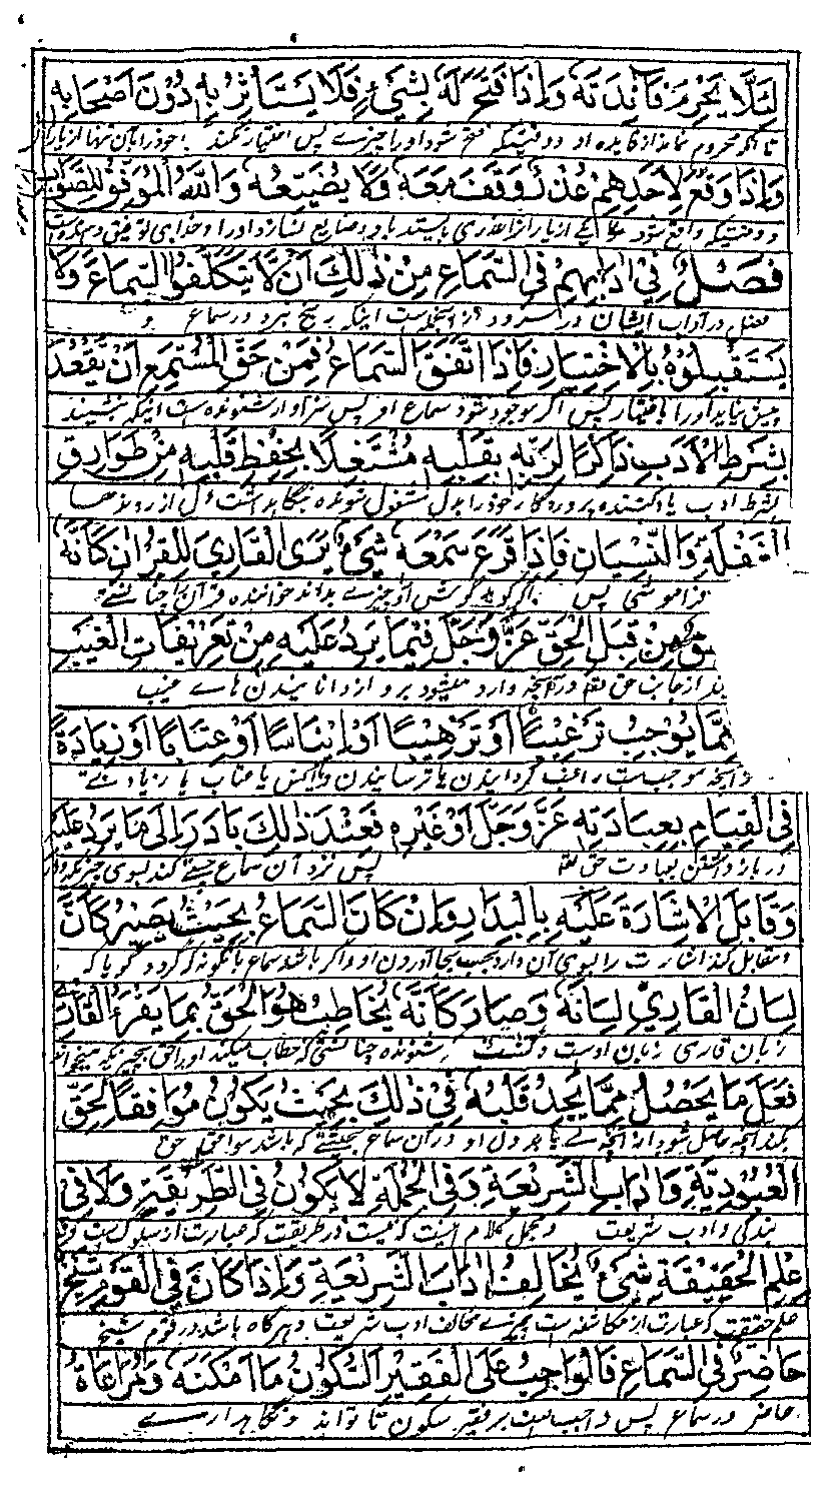 لِئَلَّا يُحْرَمَ فَائِدَتَهُ وَاِذَا فُتِحَ لَهُ بِشَيْءٍ فَلَا يَسْتَأْثِرُ بِهِ دُوْنَ اَصْحَابِهِ
تا آنکه محروم نماند از فایده او و وقتیکه فتح شود او را چیزے پس اختیار نکند بخود را بآن تنها از یاران
وَاِذَا وَقَعَ لِاَحَدِهِمْ عُذْرٌ وَقَفَ مَعَهُ وَلَا يُضَيِّعُهُ وَاللّٰهُ الْمُوَفِّقُ لِلصَّوَابِ
و وقتیکه واقع شود یکے از یاران را عذری بایستد با او و ضایع نسازد او را و خدای توفیق دهنده است
فَصْلٌ فِيْ اٰدَابِهِمْ فِي السَّمَاعِ مِنْ ذٰلِكَ اَنْ لَّا يَتَكَلَّفُوا السَّمَاعَ وَلَا
فصل در آداب ایشان در سرود از آنجمله است اینکه رنج نبرد در سماع و
يَسْتَقْبِلُوْهُ بِالْاِخْتِيَارِ فَاِذَا اتَّفَقَ السَّمَاعُ فَمِنْ حَقِّ الْمُسْتَمِعِ اَنْ يَّقْعُدَ
پیش نیاید او را باختیار پس اگر موجود شود سماع او پس سزاوار شنونده است اینکه بنشیند
بِشَرْطِ الْاَدَبِ ذَاكِرًا لِرَبِّهِ بِقَلْبِهِ مُشْتَغِلًا بِحِفْظِ قَلْبِهِ مِنْ طَوَارِقِ
بشرط ادب یاد کننده پروردگار خود را بدل مشغول شونده بنگاہداشت دل از روندها
الْغَفْلَةِ وَالنِّسْيَانِ فَاِذَا قَرَعَ سَمْعَهُ شَيْءٌ يَرَى الْقَارِيَ لِلْقُرْاٰنِ كَاَنَّهُ
فراموشی پس اگر کوبد گوش او چیزے بداند خواننده قرآن چنانستے
مِنْ قِبَلِ الْحَقِّ عَزَّ وَجَلَّ فِيْمَا يَرِدُ عَلَيْهِ مِنْ تَعْرِيْفَاتِ الْغَيْبِ
از جانب حق در آنچه وارد میشود برو از دانانیدن هاے غیب
مِمَّا يُوْجِبُ تَرْغِيْبًا اَوْ تَرْهِيْبًا اَوْ اِيْنَاسًا اَوْ عِتَابًا اَوْ زِيَادَةً
و آنچه موجب است راغب گردانیدن یا ترسانیدن و انس یا عتاب یا زیادتے
فِي الْقِيَامِ بِعِبَادَتِهِ عَزَّ وَجَلَّ اَوْ غَيْرِهِ فَعِنْدَ ذٰلِكَ بَادَرَ اِلٰى مَا يَرِدُ عَلَيْهِ
در باز داشتن بعبادت حق پس نزد آن سماع کند بسوی چیزیکه
وَقَابَلَ الْاِشَارَةَ عَلَيْهِ بِالْبِدَارِ وَاِنْ كَانَ السَّمَاعُ بِحَيْثُ يَصِيْرُ كَاَنَّ
و مقابل کند اشارت را بسوی آن وارد بجا آوردن او و اگر باشد سماع بآنگونه که گردد گویا که
لِسَانُ الْقَارِيْ لِسَانَهُ وَصَارَ كَاَنَّهُ يُخَاطِبُ هُوَ الْحَقُّ بِمَا يَقْرَءُ الْقَارِيْ
زبان قاری زبان اوست و گشت شنونده چنانستی که خطاب میکند او را حق بچیزیکه میخواند
فَعَلَ مَا يَحْصُلُ مِمَّا يَجِدُ قَلْبُهُ فِيْ ذٰلِكَ بِحَيْثُ يَكُوْنُ مُوَافِقًا لِحَقِّ
بکند آنچه حاصل شود از آنچه یابد دل او در آن سماع بحیثیتے که باشد موافق حق
الْعُبُوْدِيَّةِ وَاٰدَابِ الشَّرِيْعَةِ وَفِي الْجُمْلَةِ لَا يَكُوْنُ فِي الطَّرِيْقَةِ وَلَا فِيْ
بندگی و ادب شریعت و مجمل کلام اینست که نیست در طریقت که عبارت از سلوک است و نه
عِلْمِ الْحَقِيْقَةِ شَيْءٌ يُخَالِفُ اٰدَابَ الشَّرِيْعَةِ وَاِذَا كَانَ فِي الْقَوْمِ شَيْخٌ
علم حقیقت که عبارت از مکاشفه است چیزے مخالف ادب شریعت و هرگاه باشد در قوم شیخ
حَاضِرٌ فِي السَّمَاعِ فَالْوَاجِبُ عَلَى الْفَقِيْرِ السُّكُوْنُ مَا اَمْكَنَهُ وَمُرَاعَاةُ
حاضر در سماع پس واجب است بر فقیر سکون تا تواند و نگاہدارے